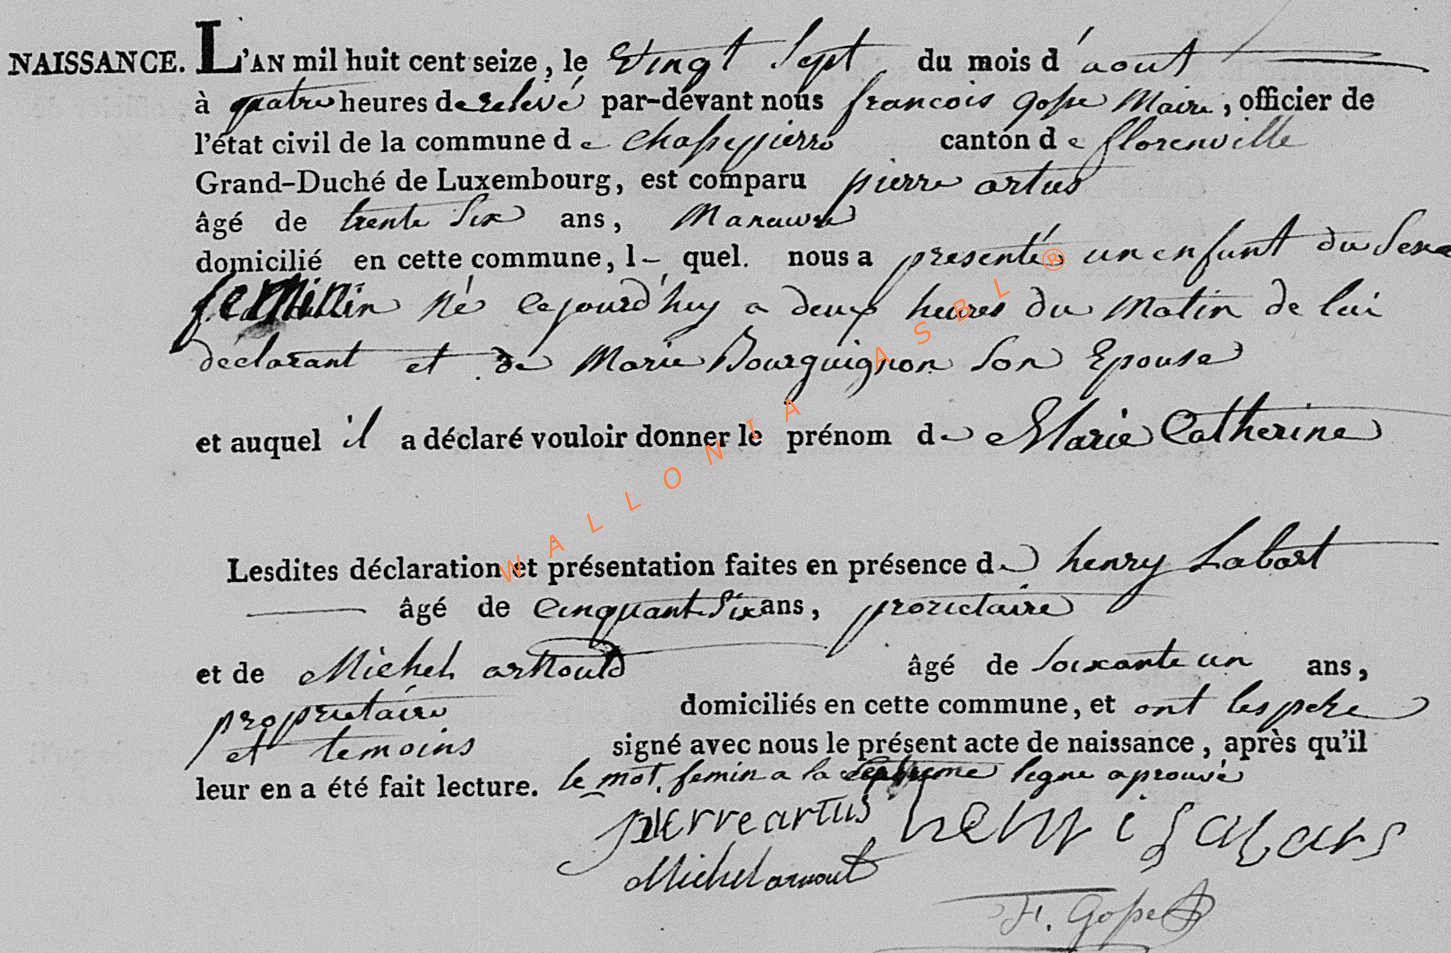 NAISSANCE. L'AN mil huit cent seize, le Vingt Sept du mois d'aout
à quatre heures de relevé par-devant nous francois gosse Maire, officier de
l'état civil de la commune de chassepierre canton de florenville
Grand-Duché de Luxembourg, est comparu pierre artus
âgé de trente Six ans, Manœuvre
domicilié en cette commune, l- quel. nous a presenté un enfant du Sexe
feminin né cejourd'huy a deux heures du Matin de lui
declarant et de Marie Bourguignon Son Epouse
et auquel il a déclaré vouloir donner le prénom de Marie Catherine
Lesdites déclaration et présentation faites en présence de henry
âgé de cinquante Six ans, prorietaire
et de Michel arnould âgé de Soixante un ans,
proprietaire domiciliés en cette commune, et ont les pere
et temoins signé avec nous le présent acte de naissance, après qu'il
leur en a été fait lecture. le mot femin a la septieme legne aprouvé
pierre artus henri
Michel arnoult
F. Gosse
WALLONIA ASBL ®